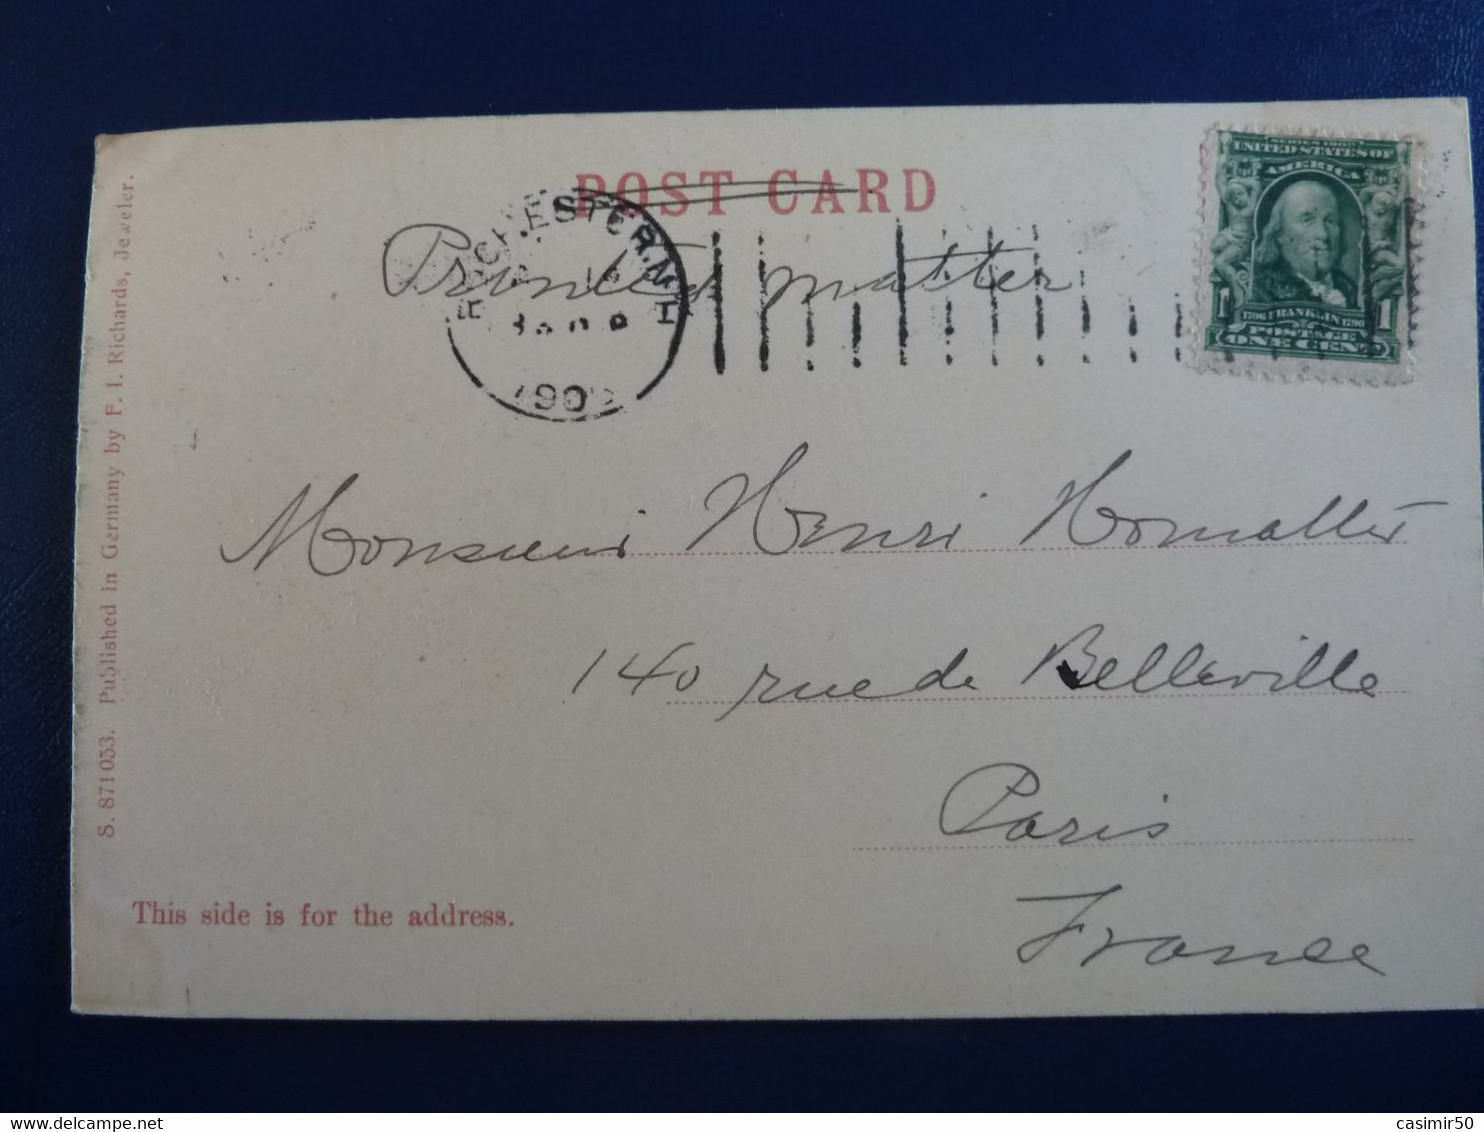 POST CARD
Printed matter
ROCHESTER. N.H
190
SERIES 1902
UNITED STATES OF
AMERICA
1 1706 FRANKLIN 1790 1
POSTAGE
ONE CENT
Monsieur Henri
140 rue de Belleville
Paris
France
This side is for the address.
S. 871053. Published in Germany by F. I. Richards, Jeweler.
casimir50